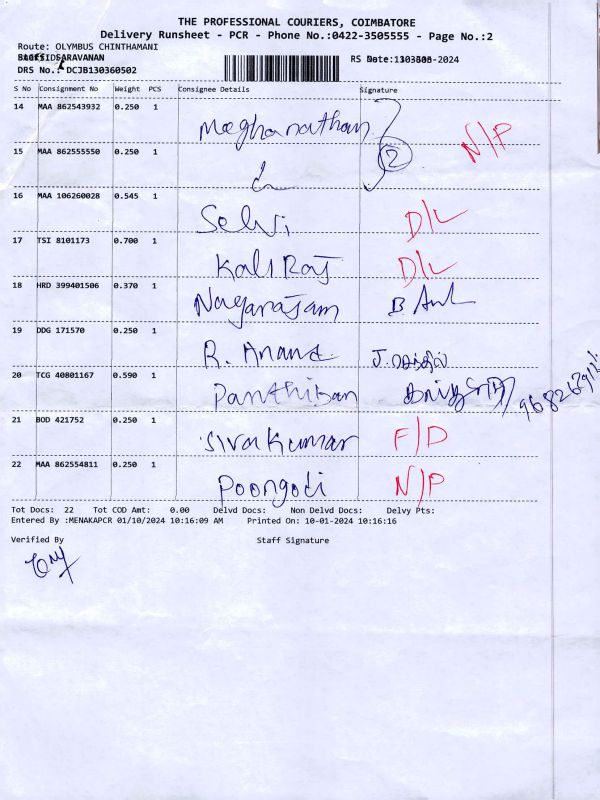 THE PROFESSIONAL COURIERS, COIMBATORE
Delivery Runsheet - PCR - Phone No.:0422-3505555 - Page No.:2
Route: OLYMBUS CHINTHAMANI
SARAVANAN
RS Date: -2024
DRS No.: DCJB130360502
S No Consignment No Weight PCS Consignee Details Signature
14 MAA 862543932 0.250 1 Meghanathan N/P
15 MAA 862555550 0.250 1 2
16 MAA 106260028 0.545 1 Selvi D/L
17 TSI 8101173 0.700 1 Kali Raj D/L
18 HRD 399401506 0.370 1 Nagarajam
19 DDG 171570 0.250 1 R. Anand
20 TCG 40801167 0.590 1 Panthiban
21 BOD 421752 0.250 1 Siva Kumar F/D
22 MAA 862554811 0.250 1 Poongodi N/P
Tot Docs: 22 Tot COD Amt: 0.00 Delvd Docs: Non Delvd Docs: Delvy Pts:
Entered By :MENAKAPCR 01/10/2024 10:16:09 AM Printed On: 10-01-2024 10:16:16
Verified By Staff Signature